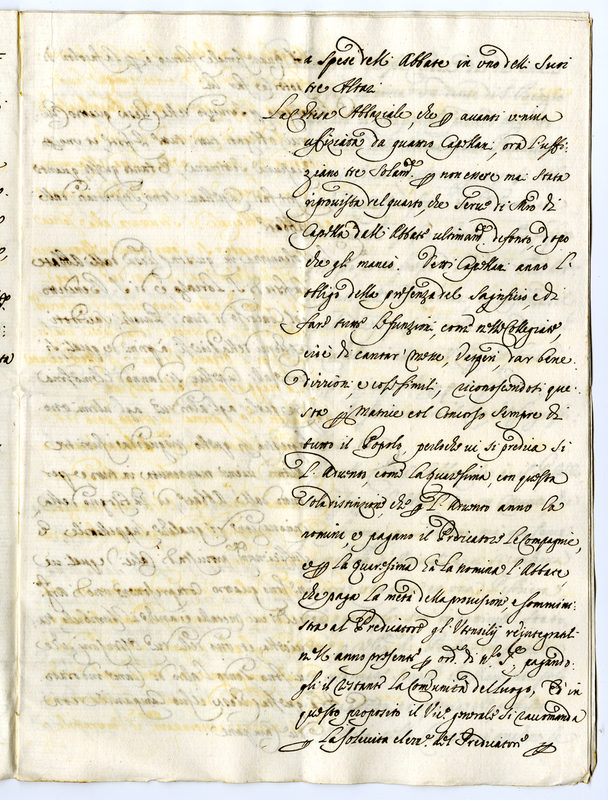 a spese delli Abbate in uno delli suoi
tre Altari
La Chiesa Abbaziale, che p avanti veniva
ufiziata da quatro Capellani, ora l'uffi-
ziano tre solam.e p non essere mai stata
riprovista del quarto, che serve di Mro di
Capella dalli Abbate ultimam.e defonto dopo
che gli mancò. Detti Capellani anno l'
obligo della presenza del Sagrificio e di
fare tutte le funzioni, come nelle Collegiate,
cioè di cantar messe, Vespri, dar bene-
dizzioni, e cose simili, riconoscendosi que-
sta p Matrice col Concorso sempre di
tutto il Popolo, perloche vi si predica si
l'Avvento, come la Quaresima, con questa
sola distinzione, che p l'Avvento anno la
nomina, e pagano il Predicatore le Compagnie,
e p la Quaresima hà la nomina l'Abbate,
che paga la metà della provisione e sommini-
stra al Predicatore gl'Utensilij reintegrati
nell'anno presente p ord.e di N.ro S.re, pagando-
gli il restante la Comunità del Luogo, Et in
questo proposito il Vic.o generale si racomanda
p la solecita elez.e del Predicatore